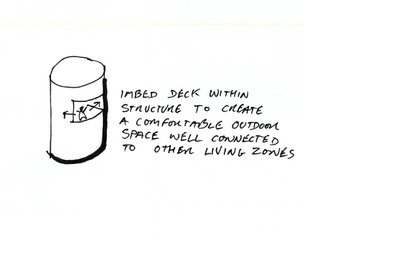 IMBED DECK WITHIN
STRUCTURE TO CREATE
A COMFORTABLE OUTDOOR
SPACE WELL CONNECTED
TO OTHER LIVING ZONES